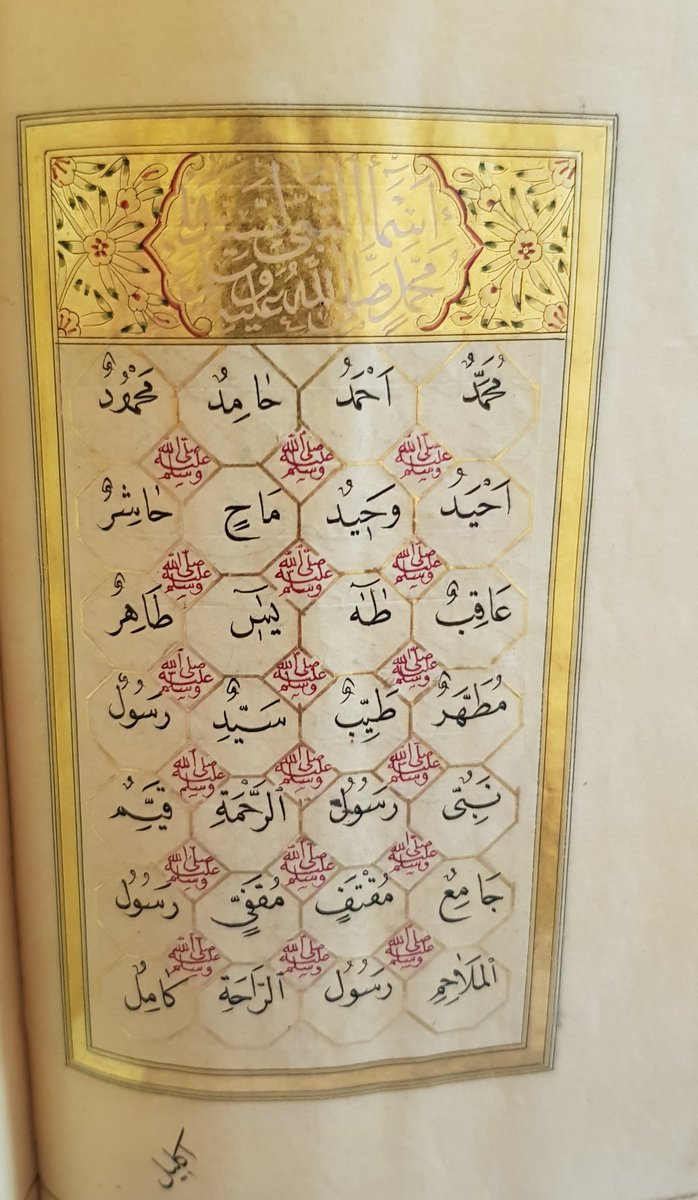 اَسْمَاءُ النَّبِيِّ سَيِّدِنَا
مُحَمَّدٍ صَلَّى اللّٰهُ عَلَيْهِ وَسَلَّمَ
مُحَمَّدٌ اَحْمَدُ حَامِدٌ مَحْمُودٌ
صلى الله عليه وسلم صلى الله عليه وسلم صلى الله عليه وسلم
اَحْيَدُ وَحِيدٌ مَاحٍ حَاشِرٌ
صلى الله عليه وسلم صلى الله عليه وسلم صلى الله عليه وسلم
عَاقِبٌ طٰهٰ يٰسٓ طَاهِرٌ
صلى الله عليه وسلم صلى الله عليه وسلم صلى الله عليه وسلم
مُطَهَّرٌ طَيِّبٌ سَيِّدٌ رَسُولٌ
صلى الله عليه وسلم صلى الله عليه وسلم صلى الله عليه وسلم
نَبِىٌّ رَسُولُ الرَّحْمَةِ قَيِّمٌ
صلى الله عليه وسلم صلى الله عليه وسلم صلى الله عليه وسلم
جَامِعٌ مُقْتَفٍ مُقَفًّى رَسُولُ
صلى الله عليه وسلم صلى الله عليه وسلم صلى الله عليه وسلم
الْمَلَاحِمِ رَسُولُ الرَّاحَةِ كَامِلٌ
اكليل